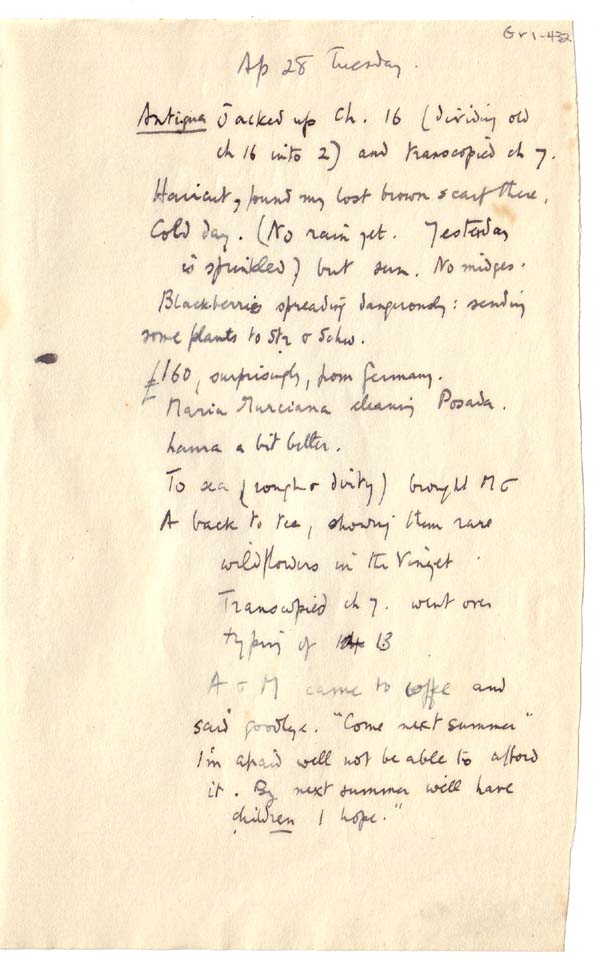 Gr1-432
Ap 28 Tuesday.
Antigua Jacked up Ch. 16 (dividing old
ch 16 into 2) and transcopied ch 7.
Haircut, found my lost brown scarf there.
Cold day. (No rain yet. Yesterday
is sprinkled) but sun. No midges.
Blackberries spreading dangerously: sending
some plants to & Schw.
£160, surprisingly, from Germany.
Maria Murciana cleaning Posada.
Laura a bit better.
To sea (rough & dirty) brought M &
A back to tea, showing them rare
wildflowers in the Vinyet
Transcopied ch 7. went over
typing of 13
A & M came to coffee and
said goodbye. "Come next summer"
I'm afraid we'll not be able to afford
it. By next summer we'll have
children I hope."